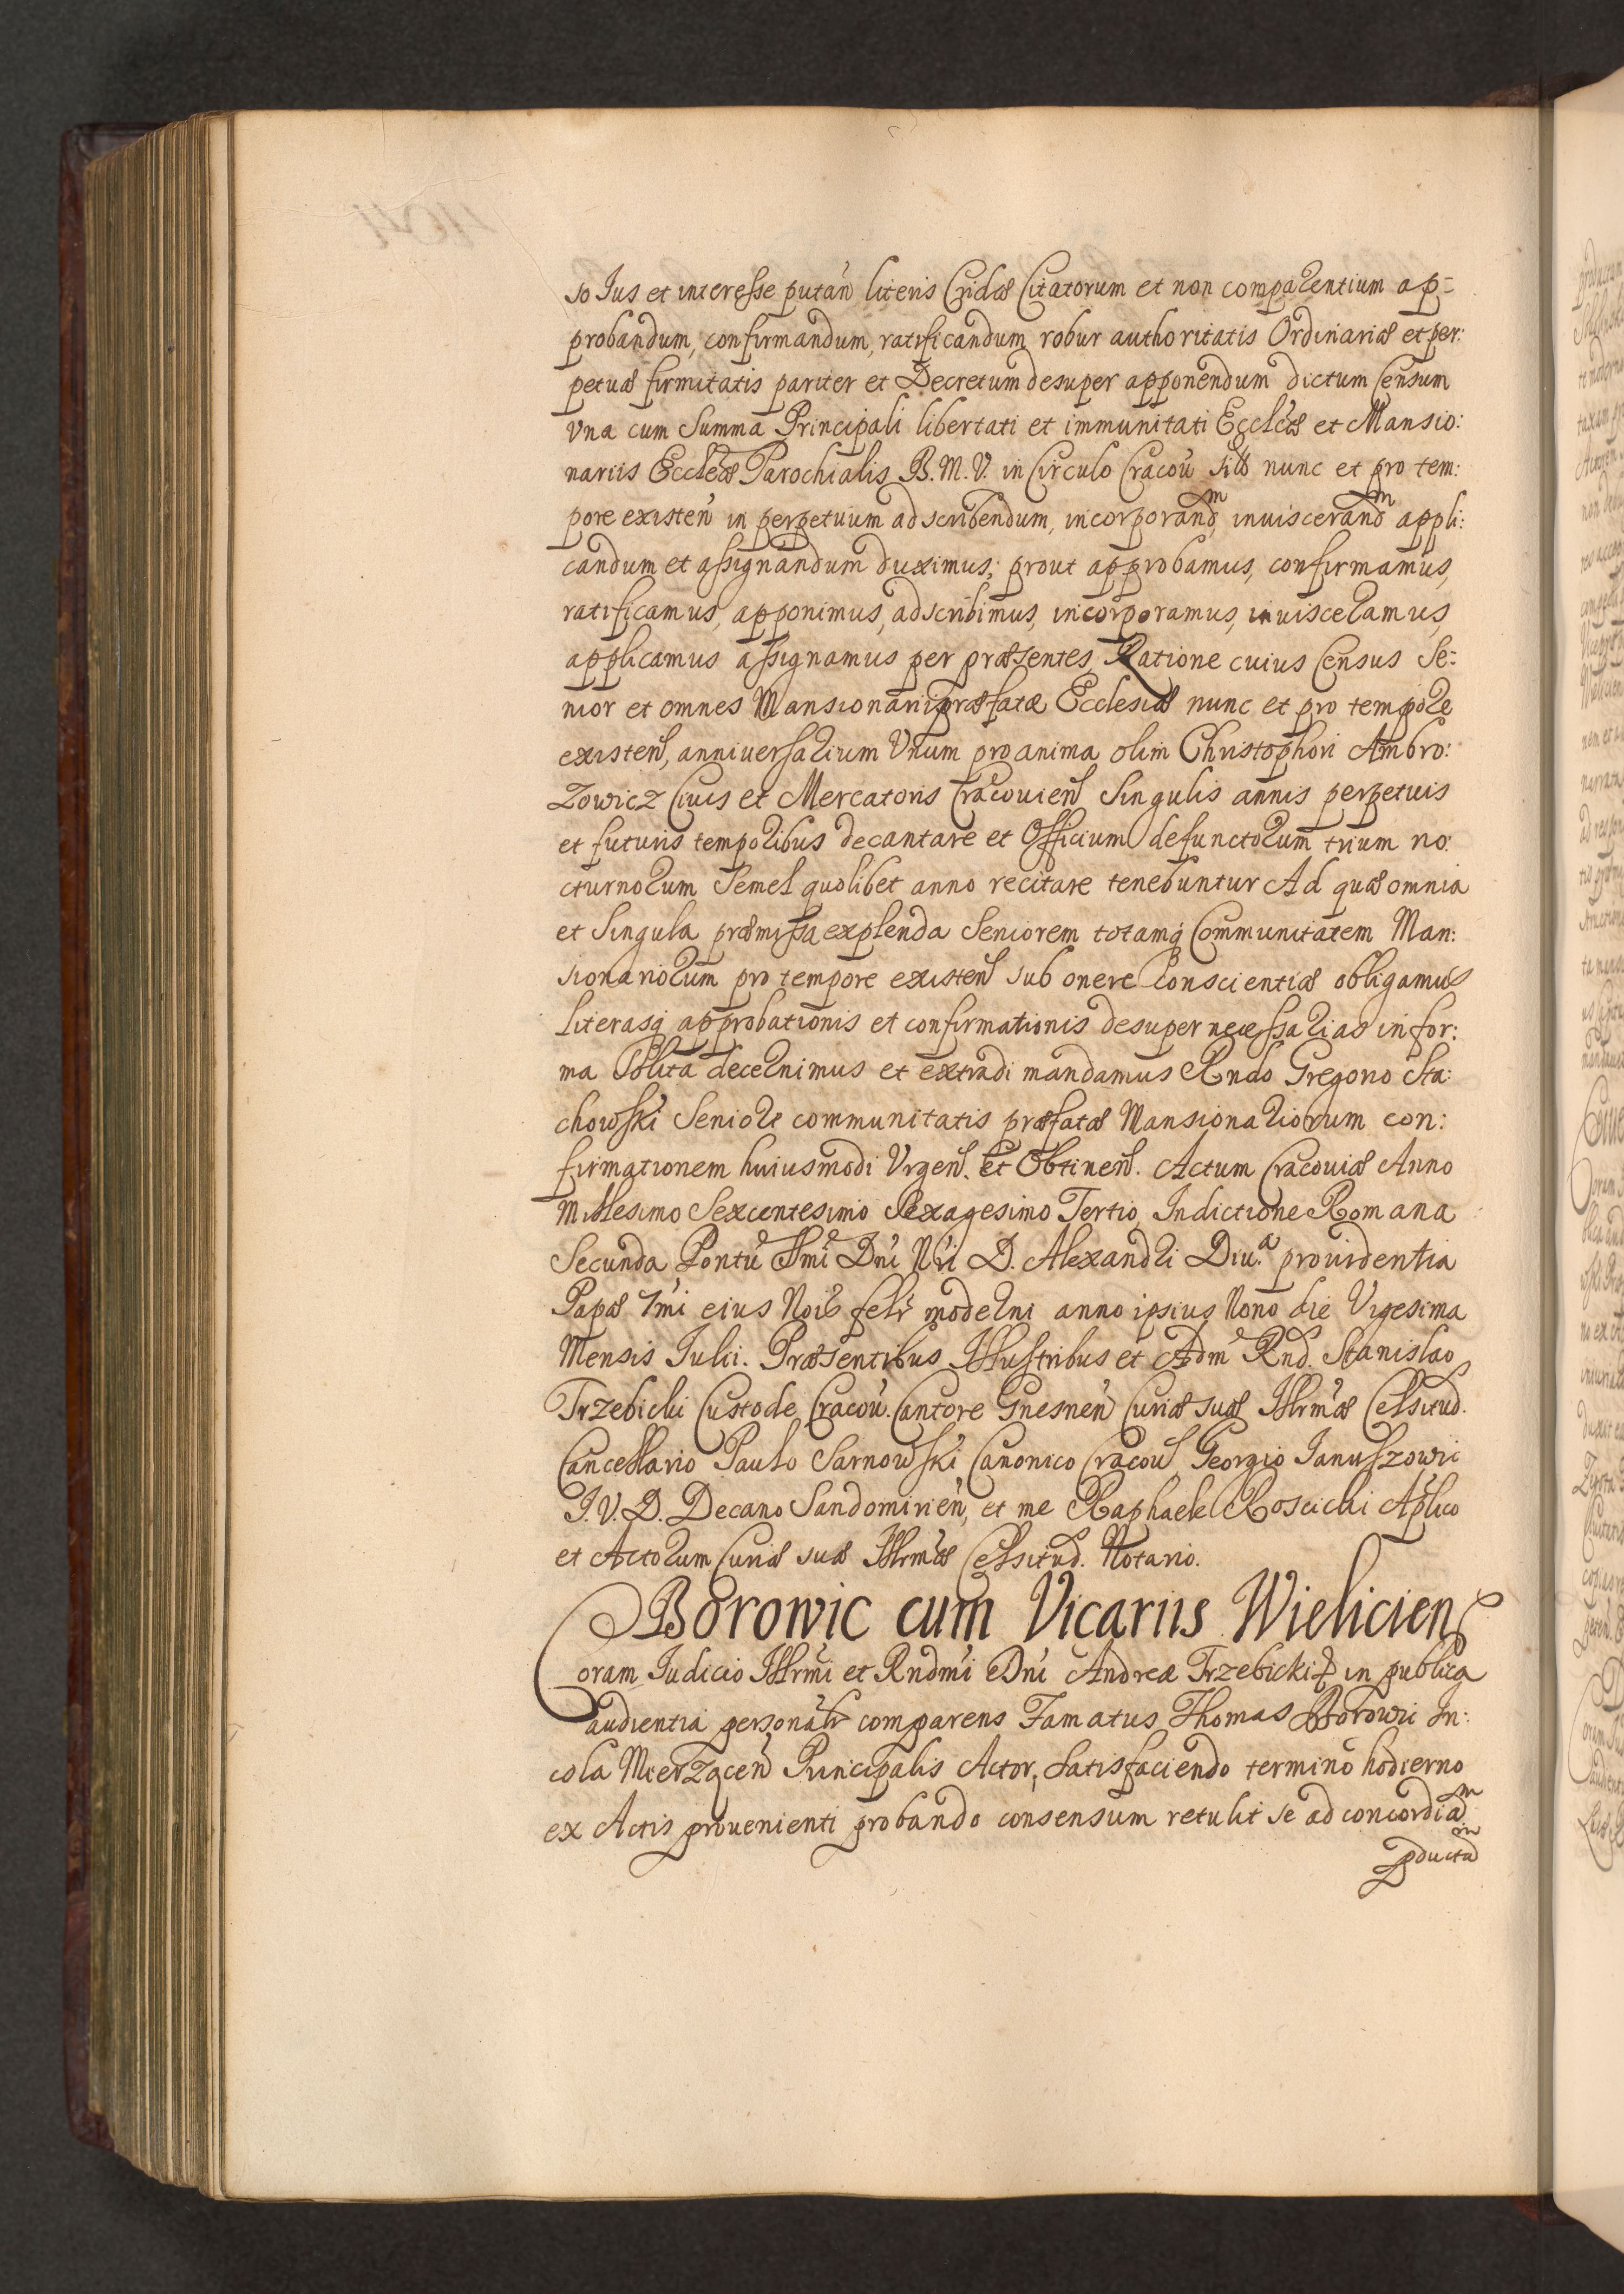 so Ius et interesse putan̄ literis Cridæ Citatorum et non comparentium ap=
probandum, confirmandum, ratificandum robur authoritatis Ordinariæ et per:
petuæ firmitatis pariter et Decretum desuper apponendum dictum Censum
Vna cum Summa Principali libertati et immunitati Eccl̃iæ et Mansio:
nariis Eccleæ Parochialis B. M. V. in Circulo Cracou̇ sitæ nunc et pro tem:
pore existen̄ in perpetuum adscribendum, incorporandᵐ, inuiscerandᵐ appli:
candum et assignandum duximus; prout approbamus, confirmamus,
ratificamus, apponimus, adscribimus, incorporamus, inuisceramus,
applicamus assignamus per præsentes. Ratione cuius Census Se=
nior et omnes Mansionarii præfatæ Ecclesiæ nunc et pro tempore
existen̄, anniuersarium Vnum pro anima olim Christophori Ambro:
Zowicz Ciuis et Mercatoris Cracouien̄ Singulis annis perpetuis
et futuris temporibus decantare et Officium defunctorum trium no:
cturnorum Semel quolibet anno recitare tenebuntur Ad quæ omnia
et Singula præmissa explenda Seniorem totamq̨ Communitatem Man:
sionariorum pro tempore existen̄ sub onere Conscientiæ obligamus
literasq̨ approbationis et confirmationis desuper necessarias in for:
ma Solita decernimus et extradi mandamus Rndo Gregorio Sta:
chowski Seniore communitatis præfatæ Mansionariorum con:
firmationem huiusmodi Vrgen̄. et Obtinen̄. Actum Cracouiæ Anno
Millesimo Sexcentesimo Sexagesimo Tertio, Indictione Romana
Secunda Pontu̇ Ssmi Dni Nri D. Alexandri Diu.ᵃ prouidentia
Papæ 7mi eius Nois felr̃ moderni anno ipsius Nono die Vigesima
Mensis Iulii. Præsentibus Illustribus et Adm̃ Rnd. Stanislao
Trzebicki Custode Cracou̇. Cantore Gnesnen̄ Curiæ suæ Illrmæ Celsitud.
Cancellario Paulo Sarnowski Canonico Cracou̇ Georgio Ianuszowic
I. V. D. Decano Sandomirien̄, et me Raphaele Roscicki Aplico
et Actorum Curiæ suæ Illrmæ Celsitud. Notario.
Borowic cum Vicariis Wielicien̄
Coram Iudicio Illrmi et Rndmi Dni Andreæ Trzebicki in publica
audientia personalr̃ comparens Famatus Thomas Borowic In:
cola Mierzącen̄ Principalis Actor, satisfaciendo termino hodierno
ex Actis prouenienti probando consensum retulit se ad concordiāᵐ
pductāᵐ